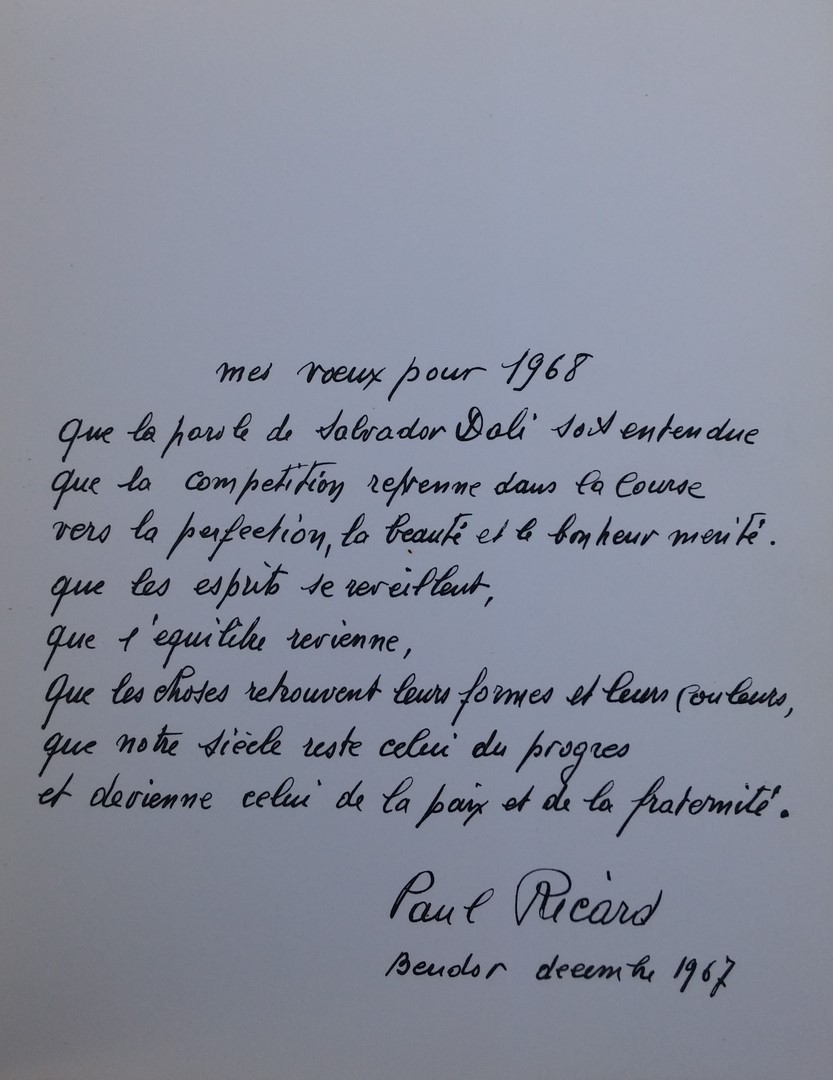 mes vœux pour 1968
que la parole de Salvador Dali soit entendue
que la competition reprenne dans la course
vers la perfection, la beauté et le bonheur merité.
que les esprits se reveillent,
que l'equilibre revienne,
que les choses retrouvent leurs formes et leurs couleurs,
que notre siècle reste celui du progres
et devienne celui de la paix et de la fraternité.
Paul Ricard
Bendor decembre 1967